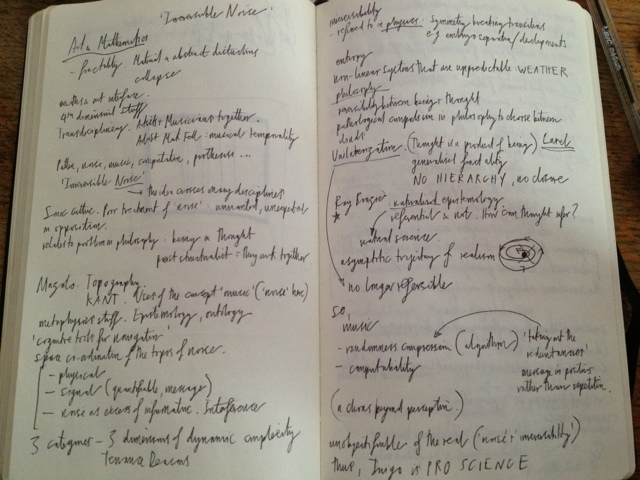 'Irreversible Noise'
Art & Mathematics
- Practically Material & abstract distinctions
collapse
maths & art interface.
4th dimensional stuff
Transdisciplinary. Artists & Musicians together.
Artist Mark Fell : musical temporality
noise, music, computation, prostheses ...
'Irreversible Noise'
the idea crosses many disciplines
Sonic culture. Poor treatment of 'noise' : unwanted, unexpected
in opposition.
relates to problem in philosophy : being & thought
post structuralist = they work together
Topography
KANT. Uses of the concept 'music' ('noise' here)
metaphysics stuff. Epistemology, ontology
'cognitive tools for navigation'
space co-ordination of the topos of noise.
- physical
- signal (quantifiable, message)
- noise as excess of information. Interference
3 categories - 3 dimensions of dynamic complexity
Terrence Deacon
irreversibility
- refined to in physics : Symmetry breaking transitions
e.g. embryo separation / developments
entropy
non-linear systems that are unpredictable WEATHER
philosophy
reversibility between being & thought
pathological compulsion in philosophy to choose between
Unilateralization (Thought is a product of being) Laruelle
NO HIERARCHY, no closure
Ray Brassier naturalised epistemology
referential & not. How can thought refer?
natural science
asymptotic trajectory of realism
no longer reversible
So,
music
- randomness compression (algorithm)
- computability
'taking out the
redundancies'
message is positive
rather than repetition.
(a chaos beyond perception.)
unobjectifiable of the real ('noise' + irreversibility)
thus, Inigo is PRO SCIENCE